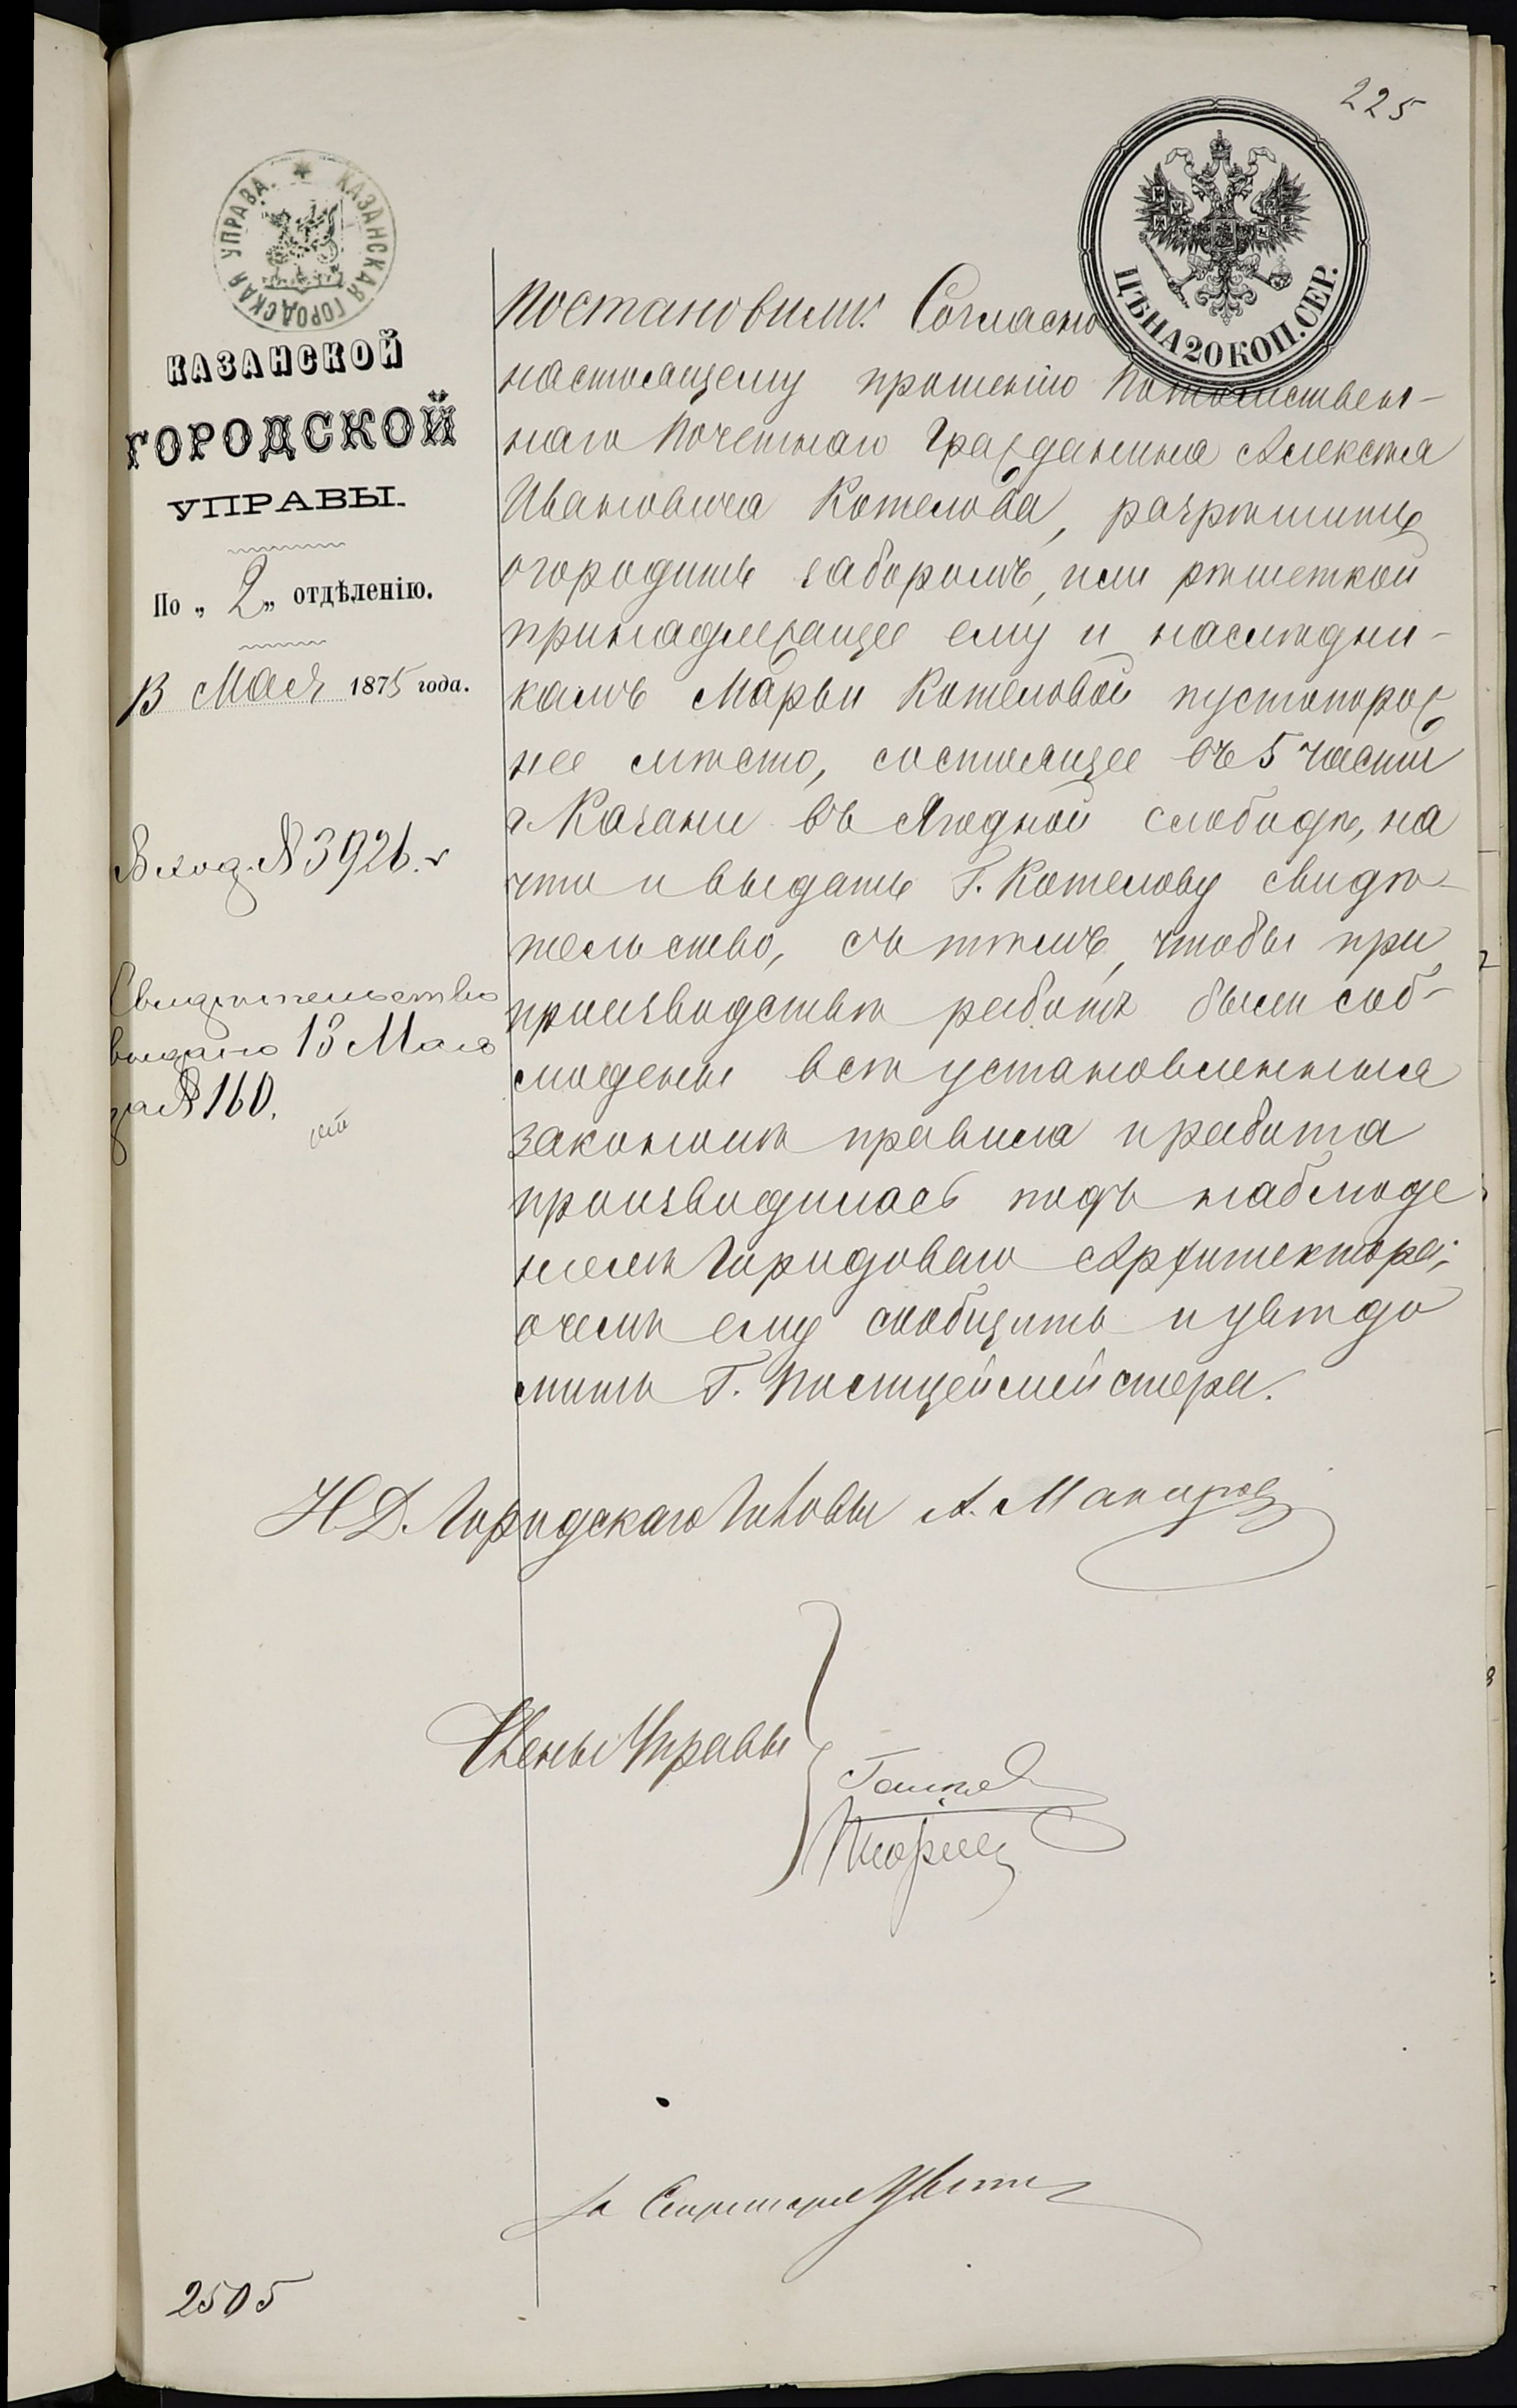 225
КАЗАНСКАЯ ГОРОДСКАЯ УПРАВА.
ЦѢНА 20 КОП. СЕР.
КАЗАНСКОЙ
ГОРОДСКОЙ
УПРАВЫ.
По „ 2 „ отдѣленію.
13 Мая 1875 года.
Вход. № 3926.
Свидѣтельство
выдано 13 Мая
за № 160.
Постановили: Согласно
настоящему прошенію Потомствен-
наго Почетнаго Гражданина Алексѣя
Ивановича Котелова, разрѣшить
огородить заборомъ, или рѣшеткой
принадлежащее ему и наслѣдни-
камъ Марьи Котеловой пустопорож
нее мѣсто, состоящее въ 5 части
г. Казани въ Ягодной слободѣ, на
что и выдать Г. Котелову свидѣ-
тельство, съ тѣмъ, чтобы при
производствѣ работъ были соб-
людены всѣ установленныя
закономъ правила и работа
производилась подъ наблюде
ніемъ Городоваго Архитектора;
о чемъ ему сообщить и увѣдо
мить Г. Полицеймейстера.
И. Д. Городскаго Головы А. Макаров
Члены Управы
За Секретаря
2505